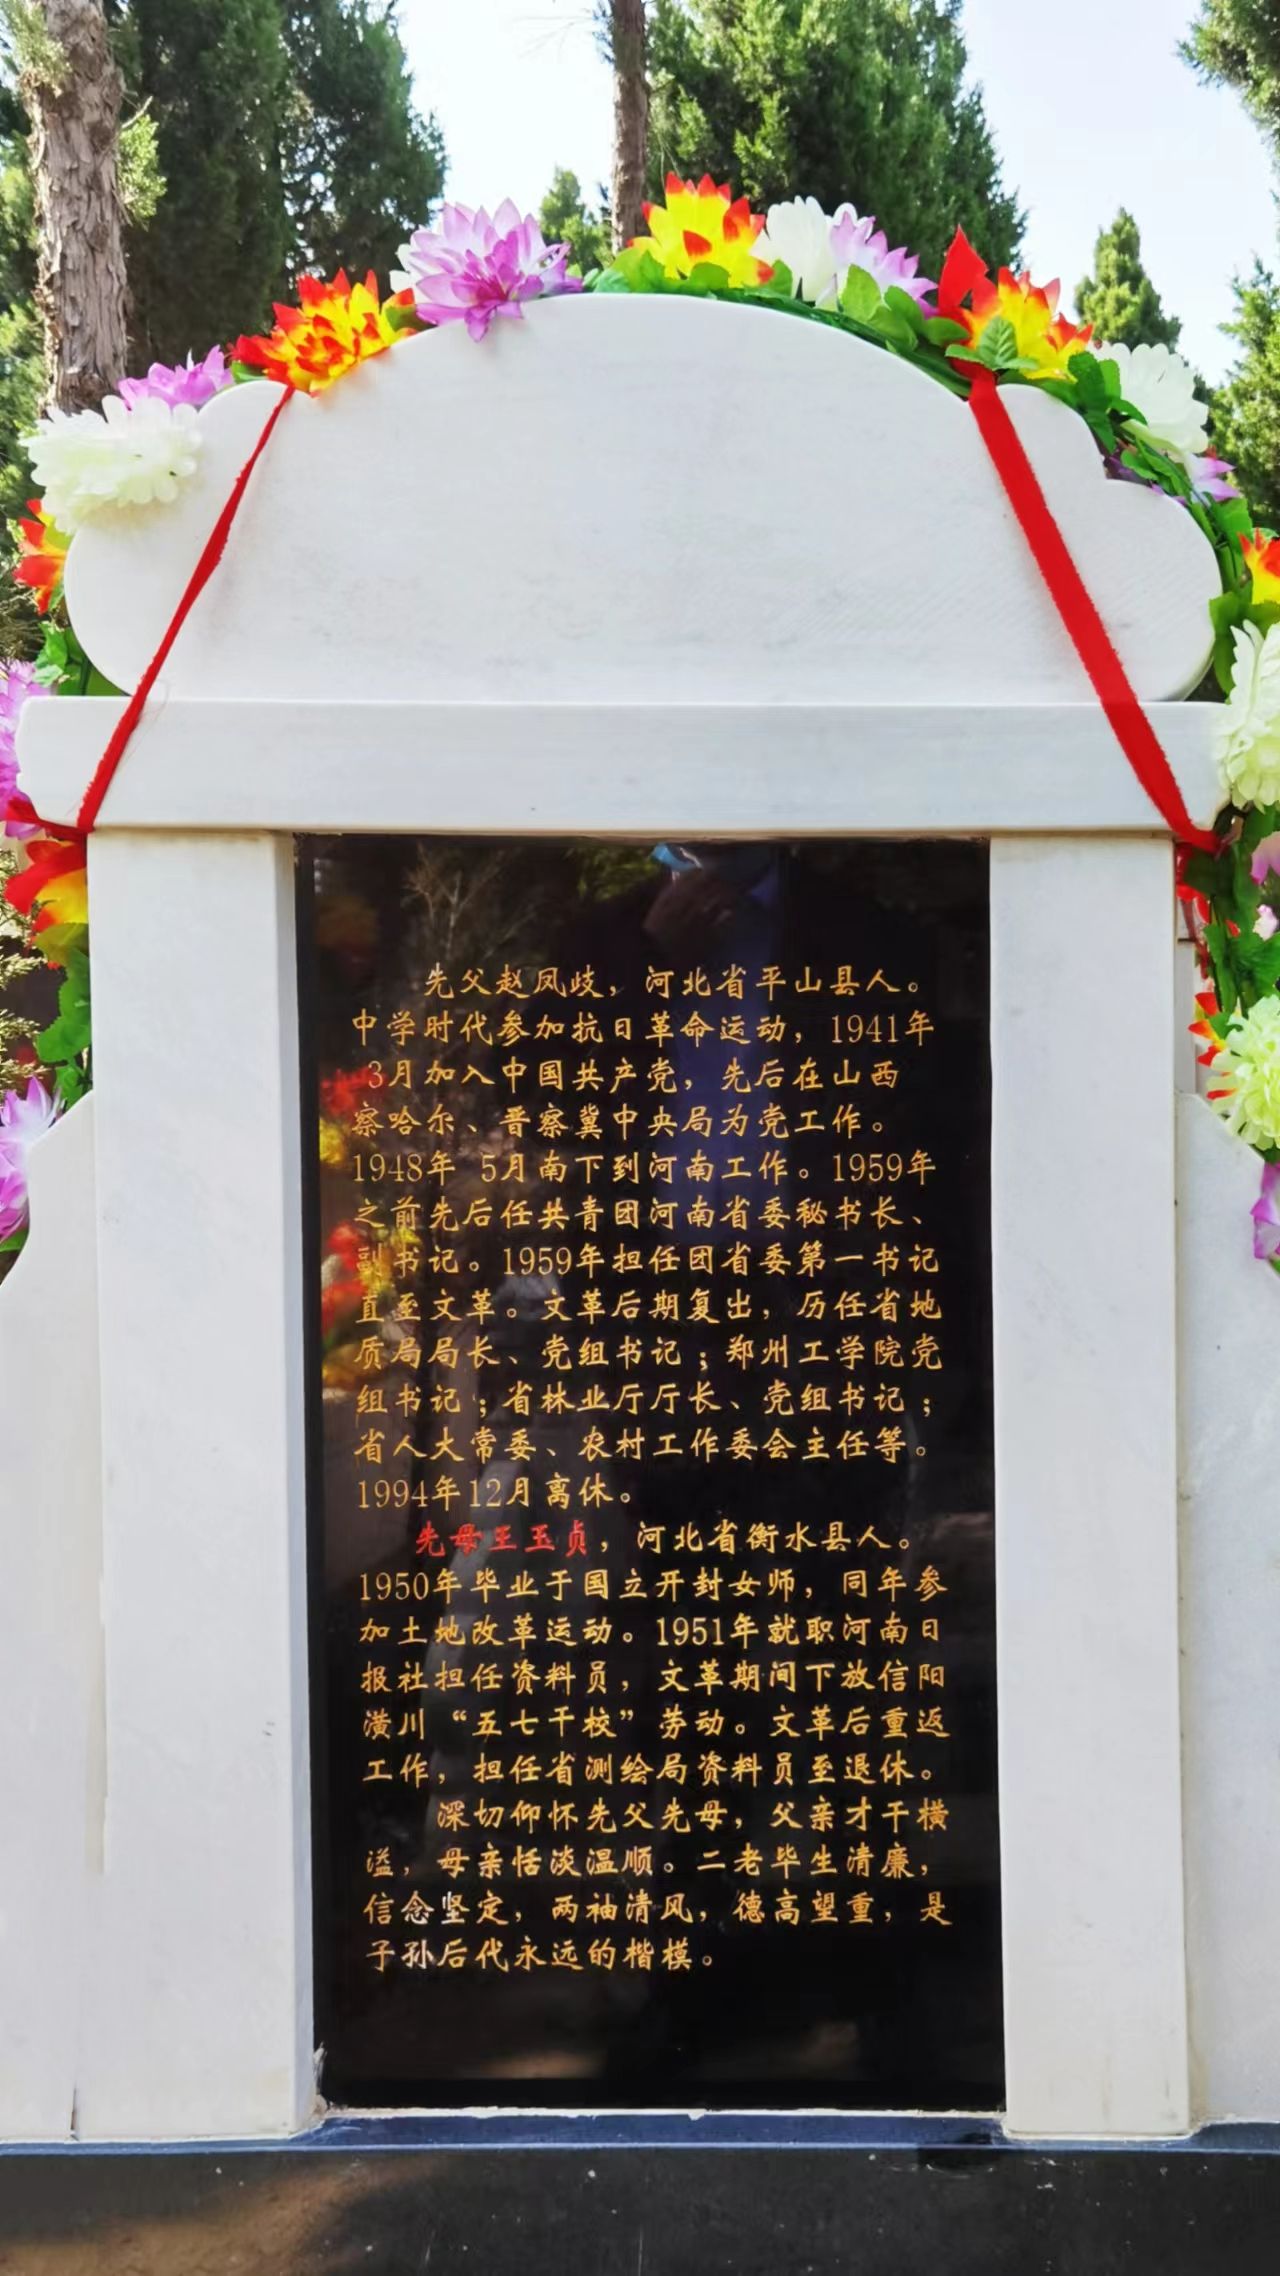 先父赵凤岐，河北省平山县人。
中学时代参加抗日革命运动，1941年
3月加入中国共产党，先后在山西
察哈尔、晋察冀中央局为党工作。
1948年 5月南下到河南工作。1959年
之前先后任共青团河南省委秘书长、
副书记。1959年担任团省委第一书记
直至文革。文革后期复出，历任省地
质局局长、党组书记；郑州工学院党
组书记；省林业厅厅长、党组书记；
省人大常委、农村工作委会主任等。
1994年12月离休。
先母王玉贞，河北省衡水县人。
1950年毕业于国立开封女师，同年参
加土地改革运动。1951年就职河南日
报社担任资料员，文革期间下放信阳
潢川“五七干校”劳动。文革后重返
工作，担任省测绘局资料员至退休。
深切仰怀先父先母，父亲才干横
溢，母亲恬淡温顺。二老毕生清廉，
信念坚定，两袖清风，德高望重，是
子孙后代永远的楷模。